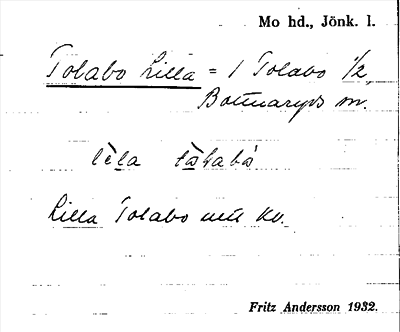 Mo hd., Jönk. l.
Tolabo Lilla = 1 Tolabo 1/2
Bottnaryds sn.
lìla tàlabò
Lilla Tolabo utti kv.
Fritz Andersson 1932.